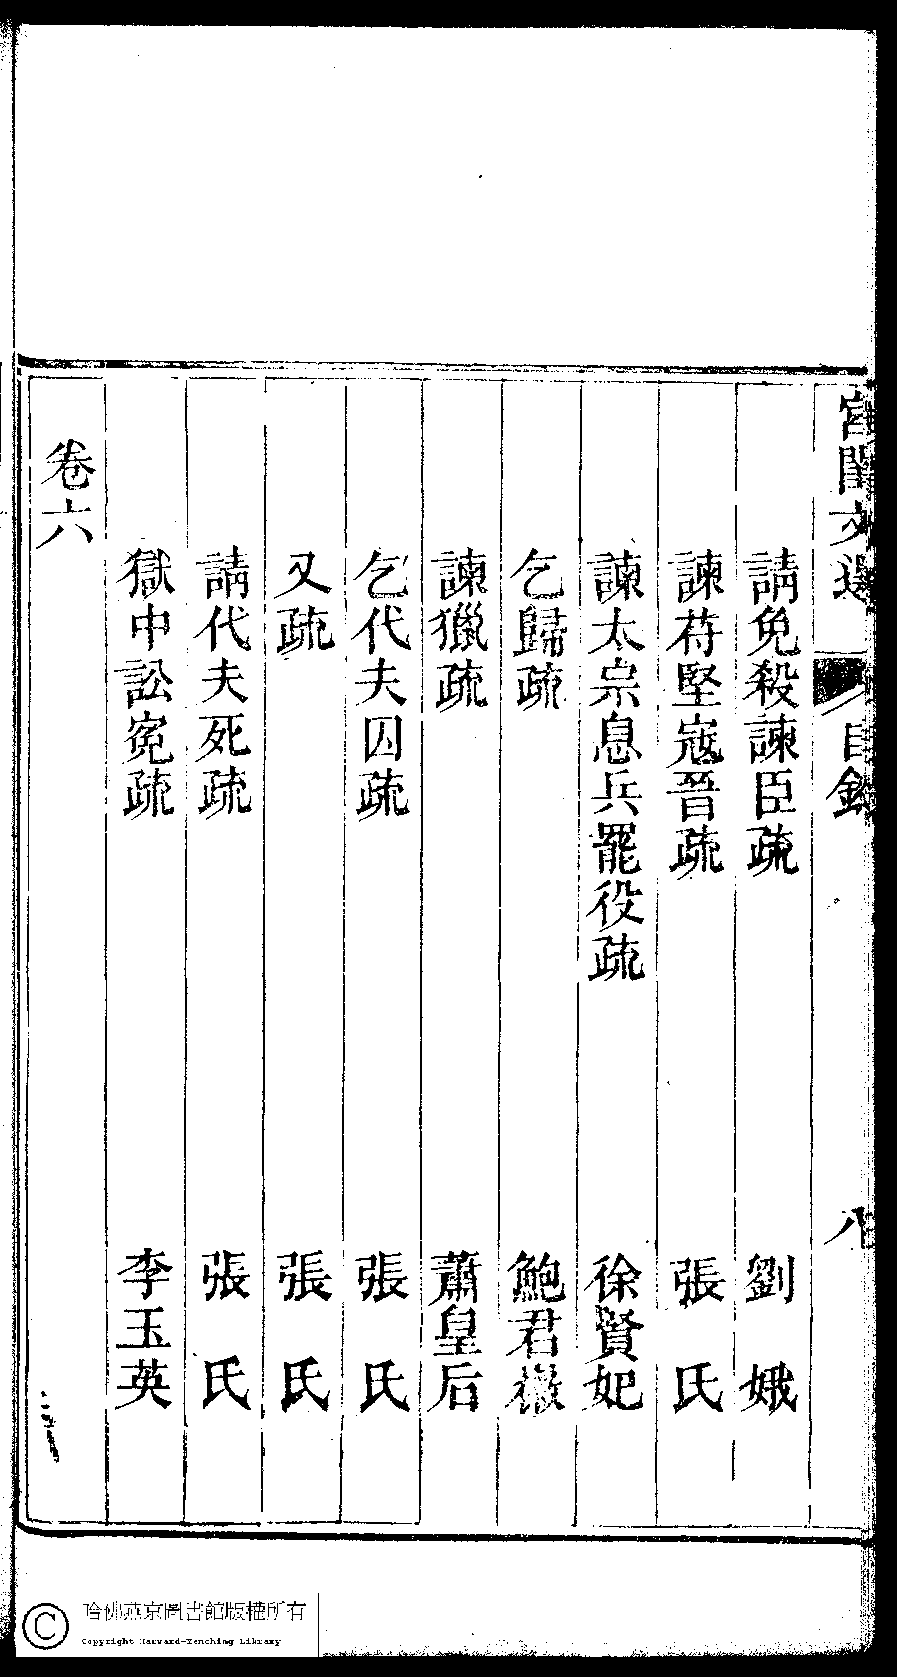 宮閨文選 目錄 八
請免殺諫臣疏 劉娥
諫苻堅寇晉疏 張氏
諫太宗息兵罷役疏 徐賢妃
乞歸疏 鮑君徽
諫獵疏 蕭皇后
乞代夫囚疏 張氏
又疏 張氏
請代夫死疏 張氏
獄中訟寃疏 李玉英
卷六
哈佛燕京圖書館版權所有
Copyright Harvard-Yenching Library